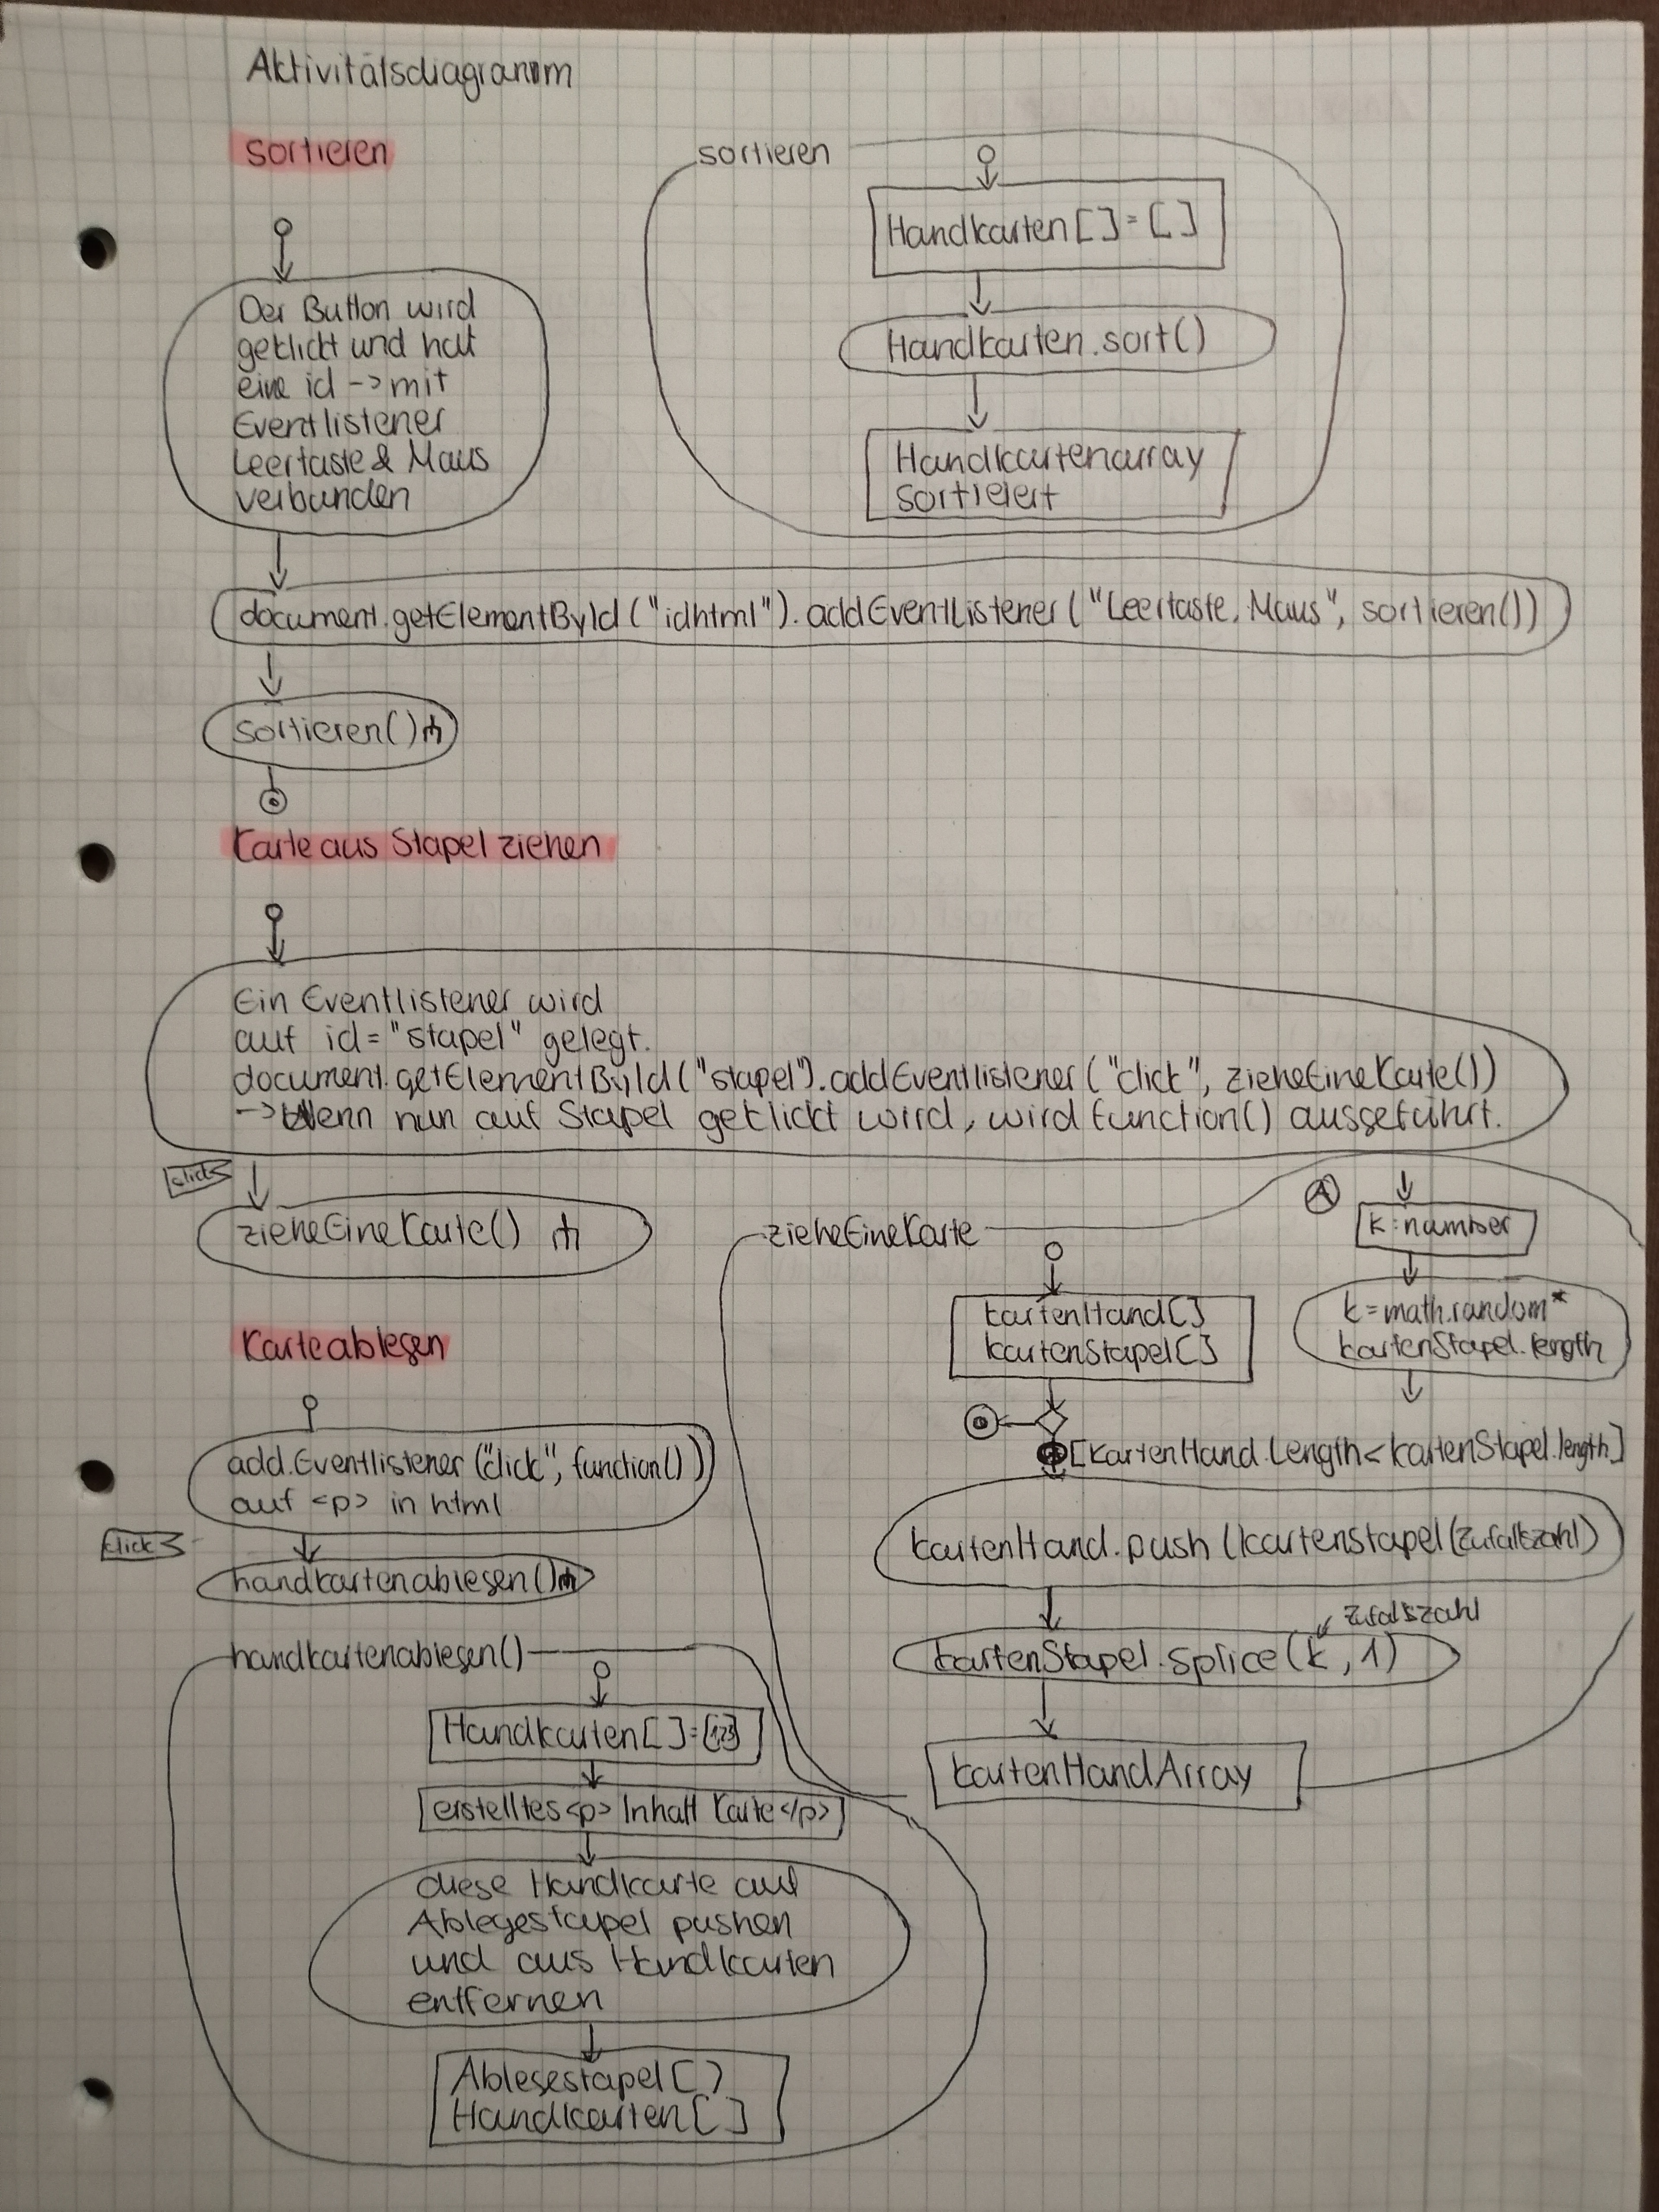 Aktivitätsdiagramm
sortieren
Der Button wird
geklickt und hat
eine id -> mit
Eventlistener
Leertaste & Maus
verbunden
sortieren
Handkarten[]=[]
Handkarten.sort()
Handkartenarray
sortiert
document.getElementById("idhtml").addEventListener("Leertaste, Maus", sortieren())
sortieren()
Karte aus Stapel ziehen
Ein Eventlistener wird
auf id="stapel" gelegt.
document.getElementById("stapel").addEventlistener("click", zieheEineKarte())
-> Wenn nun auf Stapel geklickt wird, wird function() ausgeführt.
click
zieheEineKarte()
zieheEineKarte
kartenHand[]
kartenStapel[]
[kartenHand.Length<kartenStapel.length]
kartenHand.push(kartenstapel(zufallszahl)
zufalszahl
kartenStapel.splice(k,1)
kartenHandArray
A
k:number
k=math.random*
kartenStapel.length
Karte ablegen
add.Eventlistener("click", function())
auf <p> in html
click
handkartenablegen()
handkartenablegen()
Handkarten[]=[123]
erstelltes <p> Inhalt Karte </p>
diese Handkarte auf
Ablegestapel pushen
und aus Handkarten
entfernen
Ablegestapel[]
Handkarten[]